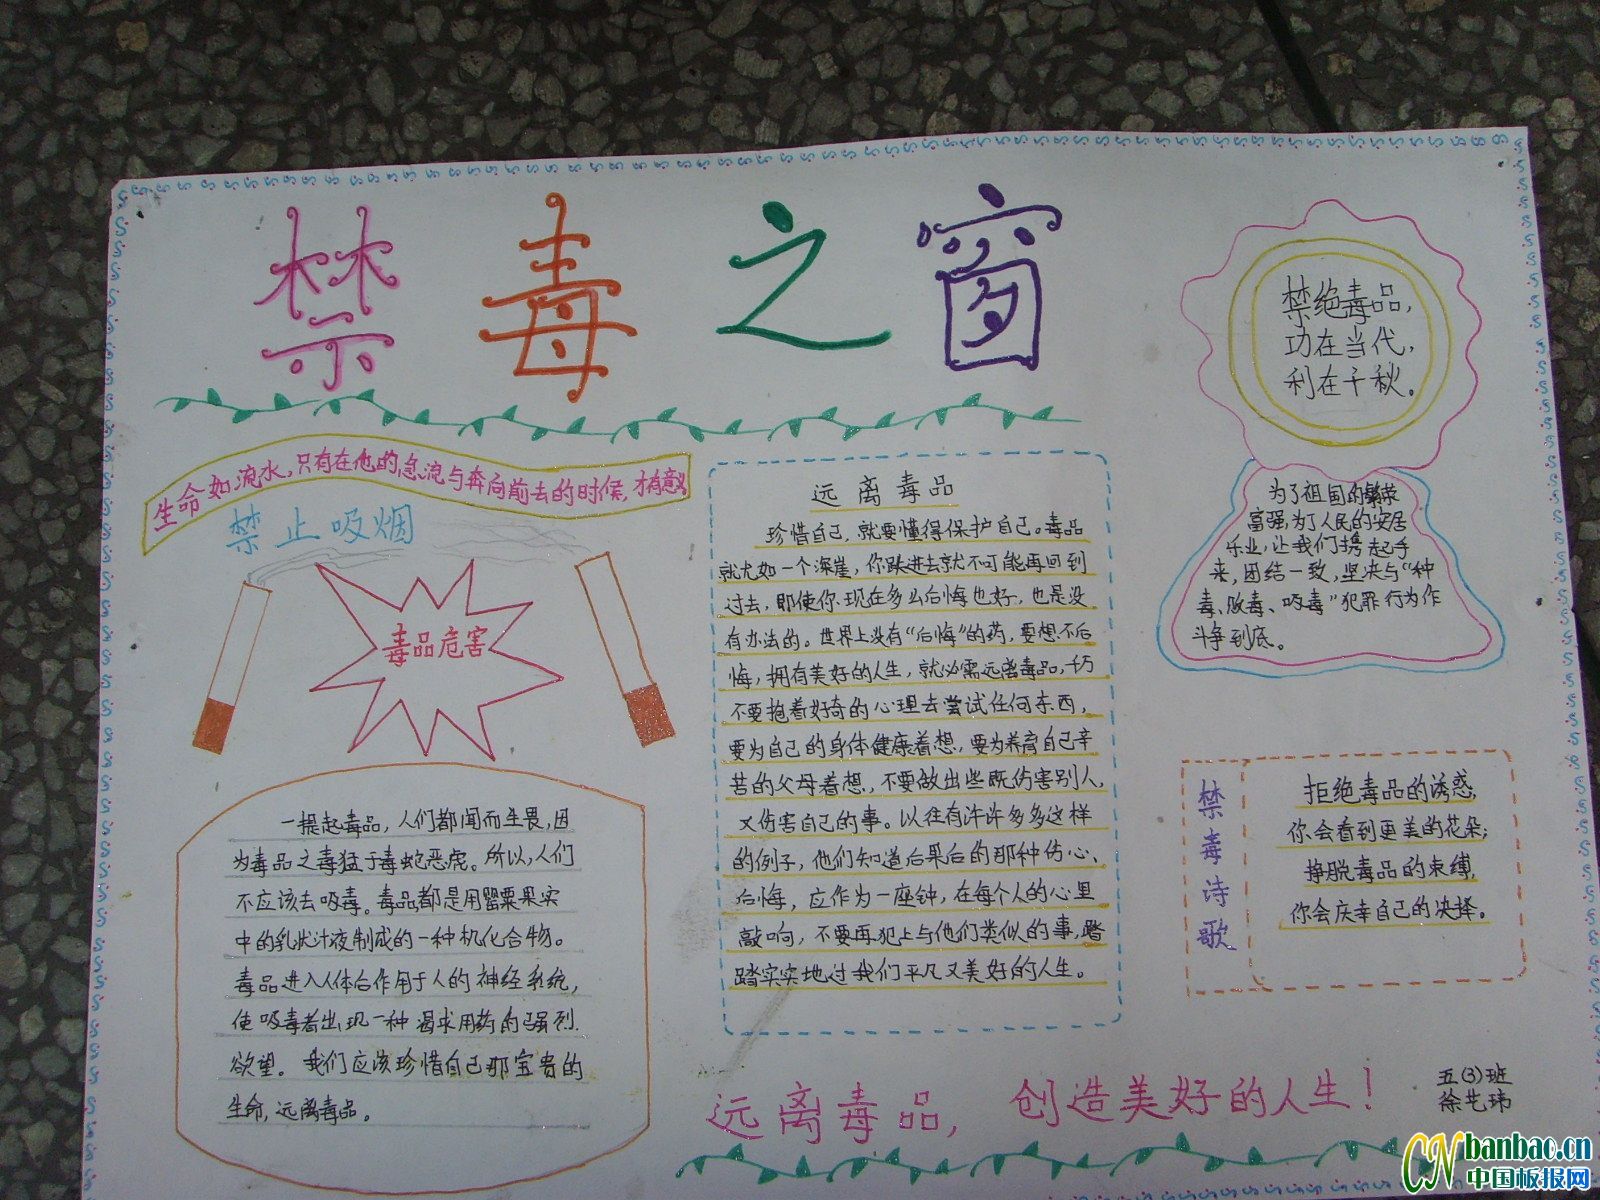 禁毒之窗
生命如流水,只有在他的急流与奔向前去的时候,才有意义
禁止吸烟
毒品危害
一提起毒品,人们都闻而生畏,因
为毒品之毒猛于毒蛇恶虎。所以,人们
不应该去吸毒。毒品都是用罂粟果实
中的乳状汁液制成的一种机化合物。
毒品进入人体合作用于人的神经系统,
使吸毒者出现一种渴求用药的强烈
欲望。我们应该珍惜自己那宝贵的
生命,远离毒品。
远离毒品
珍惜自己,就要懂得保护自己。毒品
就尤如一个深崖,你跌进去就不可能再回到
过去,即使你现在多么后悔也好,也是没
有办法的。世界上没有“后悔”的药,要想不后
悔,拥有美好的人生,就必需远离毒品,千万
不要抱着好奇的心理去尝试任何东西,
要为自己的身体健康着想,要为养育自己辛
苦的父母着想,不要做出些既伤害别人,
又伤害自己的事。以往有许许多多这样
的例子,他们知道后果后的那种伤心、
后悔,应作为一座钟,在每个人的心里
敲响,不要再犯上与他们类似的事,踏
踏实实地过我们平凡又美好的人生。
禁绝毒品,
功在当代,
利在千秋。
为了祖国的繁荣
富强,为了人民的安居
乐业,让我们携起手
来,团结一致,坚决与“种
毒、贩毒、吸毒”犯罪行为作
斗争到底。
禁毒诗歌
拒绝毒品的诱惑,
你会看到更美的花朵;
挣脱毒品的束缚,
你会庆幸自己的决择。
远离毒品,创造美好的人生!
五(3)班
徐艺玮
CN banbao.cn
中国板报网